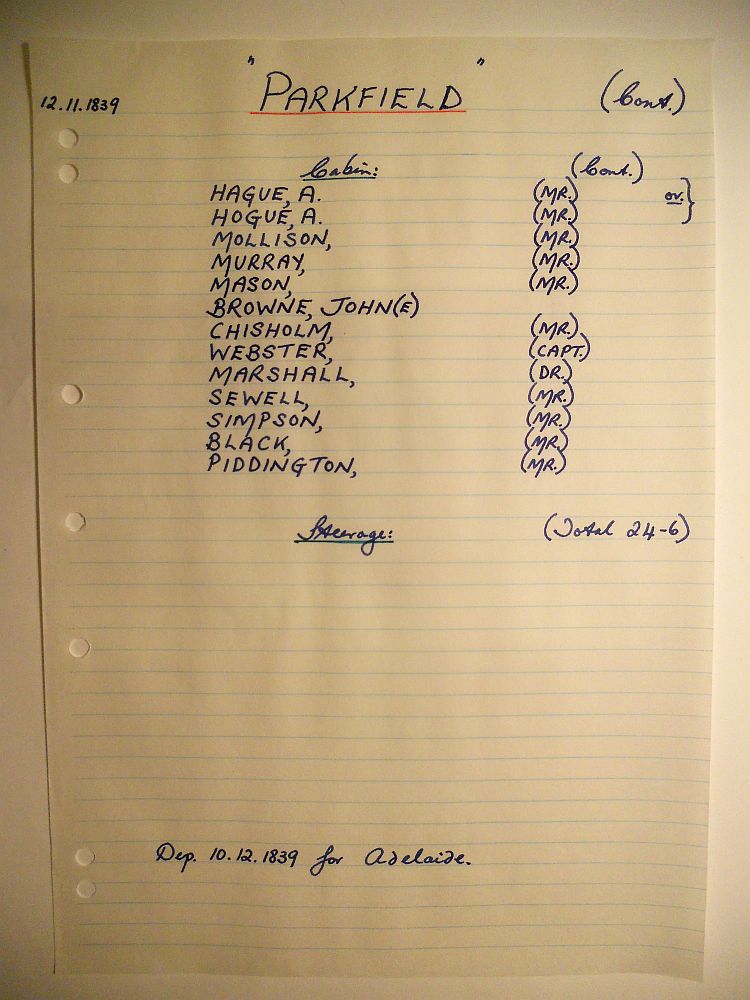 12.11.1839 "PARKFIELD" (Cont.)
Cabin: (Cont.)
HAGUE, A. (MR.) or }
HOGUE, A. (MR.)
MOLLISON, (MR.)
MURRAY, (MR.)
MASON, (MR.)
BROWNE, JOHN(E)
CHISHOLM, (MR.)
WEBSTER, (CAPT.)
MARSHALL, (DR.)
SEWELL, (MR.)
SIMPSON, (MR.)
BLACK, (MR.)
PIDDINGTON, (MR.)
Steerage: (Total 24-6)
Dep. 10.12.1839 for Adelaide.